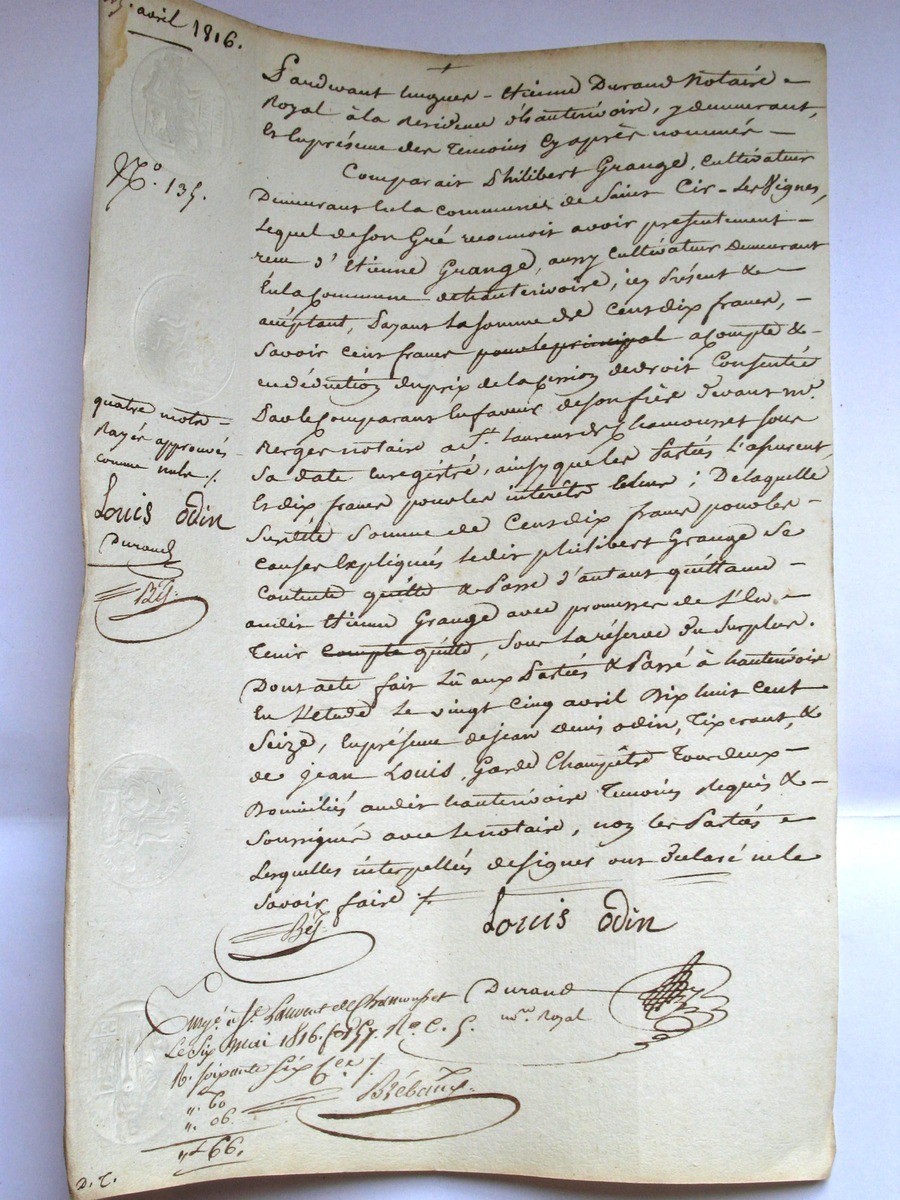 avril 1816.
Pardevant Etienne Durand Notaire
Royal à la Residence d'hauterivoire, y demeurant,
Et En présence des Temoins Cy après nommés
N.° 135.
Comparait Philibert Grange, Cultivateur
Demeurant En la commune de Saint Cir-Les Vignes,
Lequel de son Gré reconnoit avoir présentement
recu d'Etienne Grange, aussy Cultivateur Demeurant
En la Commune d'hauterivoire, icy Présent &
acceptant, la somme de Cent dix francs,
Savoir Cent francs pour le principal a compte &
en déduction du prix de la cession de droit Consentie
Par le Comparant En faveur de son frère Devant m.e
quatre mots
Rayés approuvés
comme nuls ./.
Louis Odin
Durand
Berger notaire a S.t Laurent de Chamousset sous
Sa date Enregistré, ainsy que les Parties L'assurent,
Et dix francs pour les intérêts ; De laquelle
Susdite Somme de Cent dix francs pour les
causes Expliqués ledit philibert Grange Se
Contente quitte & Passe d'autant quittance
audit Etienne Grange avec promesse de L'En
Tenir compte quitte, Sous La réserve Du Surplus.
Dont acte fait Lû aux Parties & Passé à hauterivoire
En L'etude Le vingt Cinq avril Dix huit Cent
Seize, En présence de jean denis odin, Tixerant, &
de jean Louis, Garde Champêtre Tous deux
Domiciliés audit hauterivoire Temoins Requis &
Soussignés avec Le notaire, non les Parties
Lesquelles interpellées de signer ont Déclaré ne le
Savoir faire ./.
Louis Odin
Durand
not.re Royal
Enrgé. à St. Laurent de Chamousset
Le Six Mai 1816. R.o C. 5.
R. soixante Six C.es ./.
". 60
". 06.
" 66.
D. T.